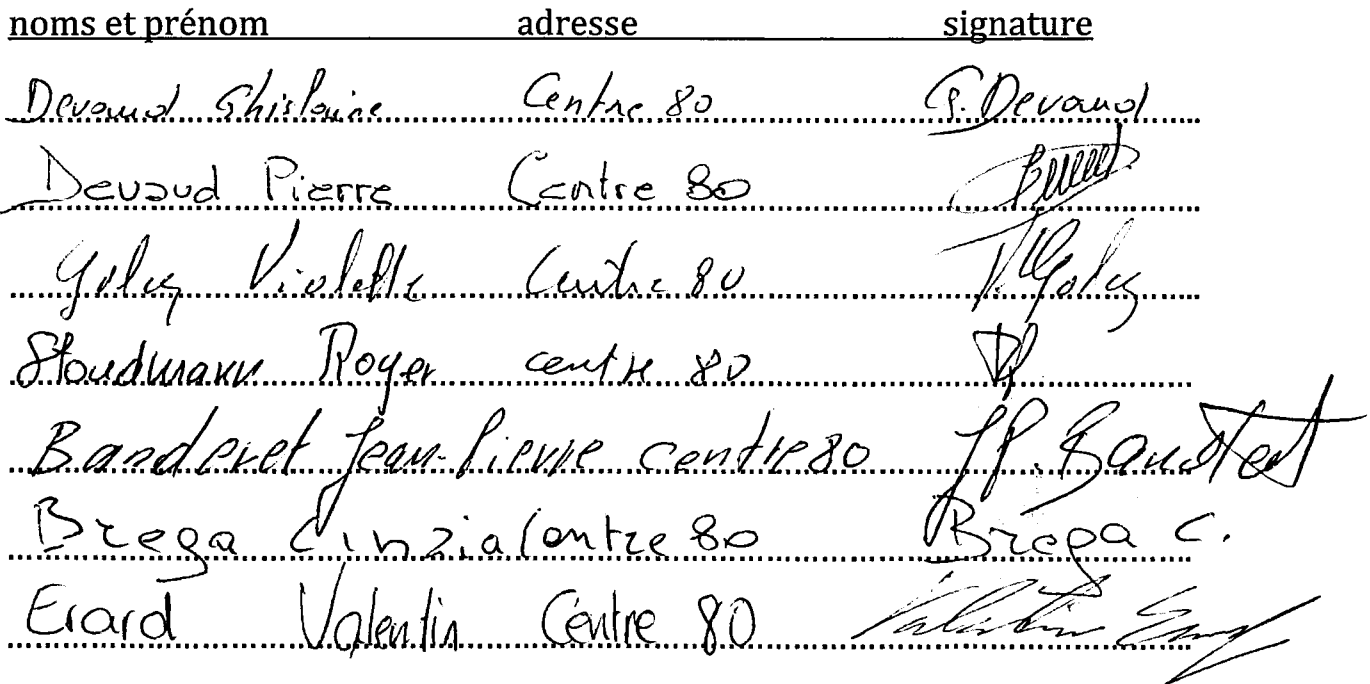 noms et prénom adresse signature
Devaud Ghislaine Centre 80 G. Devaud
Devaud Pierre Centre 80
Golay Violette Centre 80 V. Golay
Stoudmann Roger centre 80
Banderet Jean-Pierre centre 80 JP. Banderet
Brega Cinzia Centre 80 Brega C.
Erard Valentin Centre 80 Valentin Erard